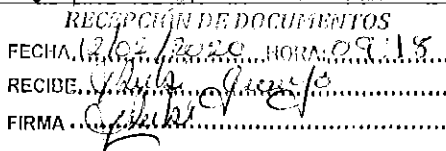 RECEPCIÓN DE DOCUMENTOS
FECHA 12/02/2020 HORA: 09:18
RECIBE
FIRMA